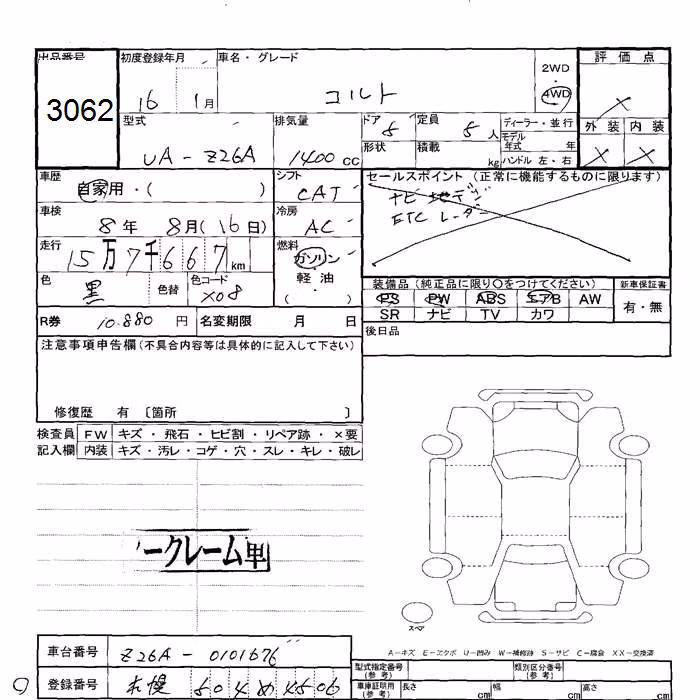 出品番号 初度登録年月 車名・グレード 2WD 評価点
3062 16 1月 コルト 4WD X
型式 排気量 ドア 5 定員 5人 ディーラー・並行 外装 内装
UA-Z26A 1400cc 形状 積載 kg モデル年式 年 X X
ハンドル 左・右
車歴 シフト セールスポイント(正常に機能するものに限ります)
自家用・( ) CAT ナビ 地デジ
車検 冷房 ETC レーダー
8年 8月(16日) AC
走行 燃料
15万7千667km ガソリン
色 色替 色コード 軽油 装備品(純正品に限り○をつけてください) 新車保証書
黒 X08 ( ) PS PW ABS エアB AW 有・無
R券 10.880円 名変期限 月 日 SR ナビ TV カワ
注意事項申告欄(不具合内容等は具体的に記入して下さい) 後日品
修復歴 有 〔箇所 〕
検査員 FW キズ・飛石・ヒビ割・リペア跡・×要
記入欄 内装 キズ・汚レ・コゲ・穴・スレ・キレ・破レ
ークレーム車
スペア
A-キズ E-エクボ U-凹み W-補修跡 S-サビ C-腐食 XX-交換済
車台番号 Z26A-0101676 型式指定番号(参考) 類別区分番号(参考)
登録番号 札幌 504 め 4506 車庫証明用(参考) 長さ cm 幅 cm 高さ cm